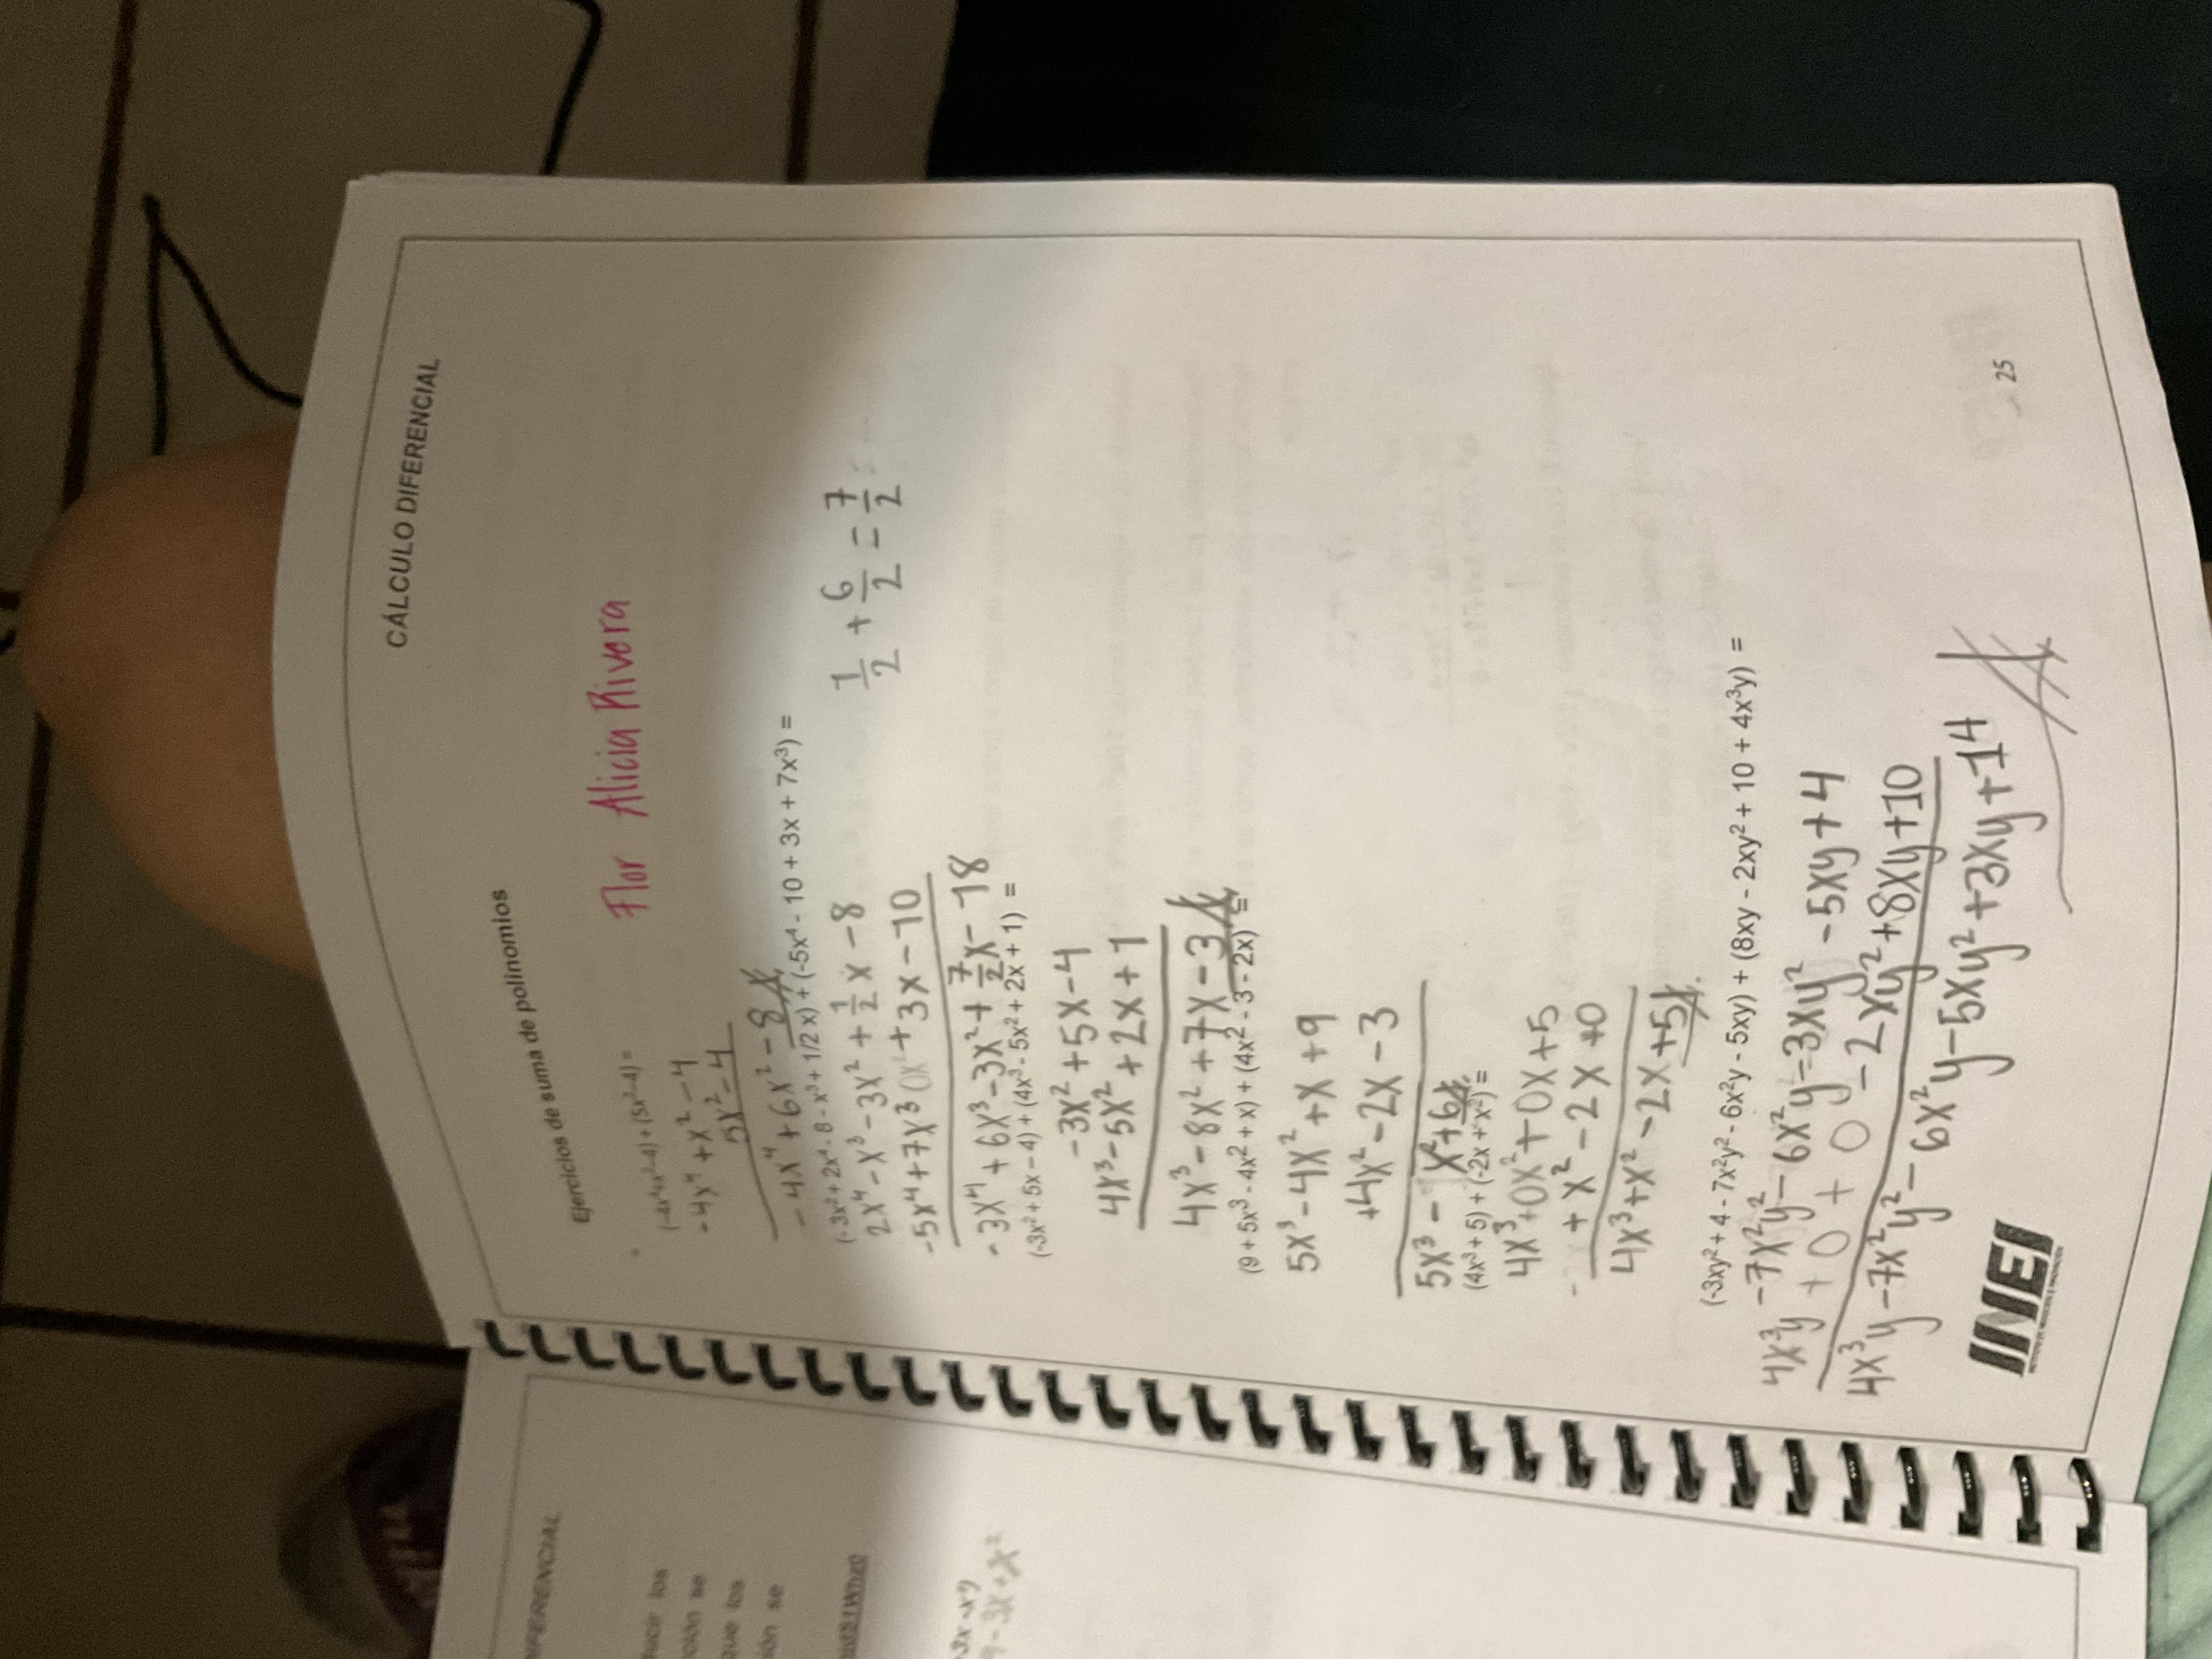 CÁLCULO DIFERENCIAL
Ejercicios de suma de polinomios
Flor Alicia Rivera
(-4x⁴+x²-4)+(5x²-4) =
-4x⁴+x²-4
5x²-4
-4x⁴+6x²-8
(-3x²+ 2x⁴- 8 - x³+ 1/2 x) + (-5x⁴ - 10 + 3x + 7x³) =
2x⁴-x³-3x²+1/2x-8
1/2+6/2=7/2
-5x⁴+7x³ 0x²+3x-10
-3x⁴+6x³-3x²+7/2x-18
(-3x²+ 5x - 4) + (4x³- 5x²+ 2x + 1) =
-3x²+5x-4
4x³-5x²+2x+1
4x³-8x²+7x-3
(9 + 5x³ - 4x² + x) + (4x² - 3 - 2x) =
5x³-4x²+x+9
+4x²-2x-3
5x³-1x²+6
(4x³+ 5) + (-2x + x²) =
4x³+0x²+0x+5
+x²-2x+0
4x³+x²-2x+5
(-3xy²+ 4 - 7x²y² - 6x²y - 5xy) + (8xy - 2xy² + 10 + 4x³y) =
4x³y-7x²y²-6x²y-3xy²-5xy+4
+0+0-2xy²+8xy+10
4x³y-7x²y²-6x²y-5xy²+3xy+14
INEI
25
DIFERENCIAL
los
ción se
que los
ión se
9-3x+x²